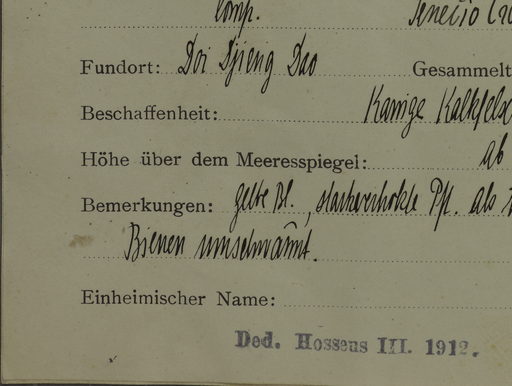 Comp. Senecio
Fundort: Doi Djieng Dao Gesammelt
Beschaffenheit: Kantige Kalkfelse
Höhe über dem Meeresspiegel: ab
Bemerkungen: gelbe Bl., Pfl. als
Bienen umschwärmt.
Einheimischer Name:
Ded. Hosseus III. 1912.